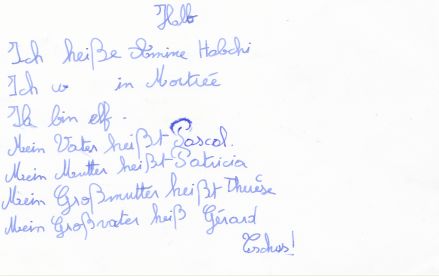 Hallo
Ich heiße Amine Habchi
Ich w in Mortrée
Ik bin elf.
Mein Vater heißt Pascal.
Mein Mutter heißt Patricia
Mein Großmutter heißt Thérèse
Mein Großvater heiß Gérard
Tschus!